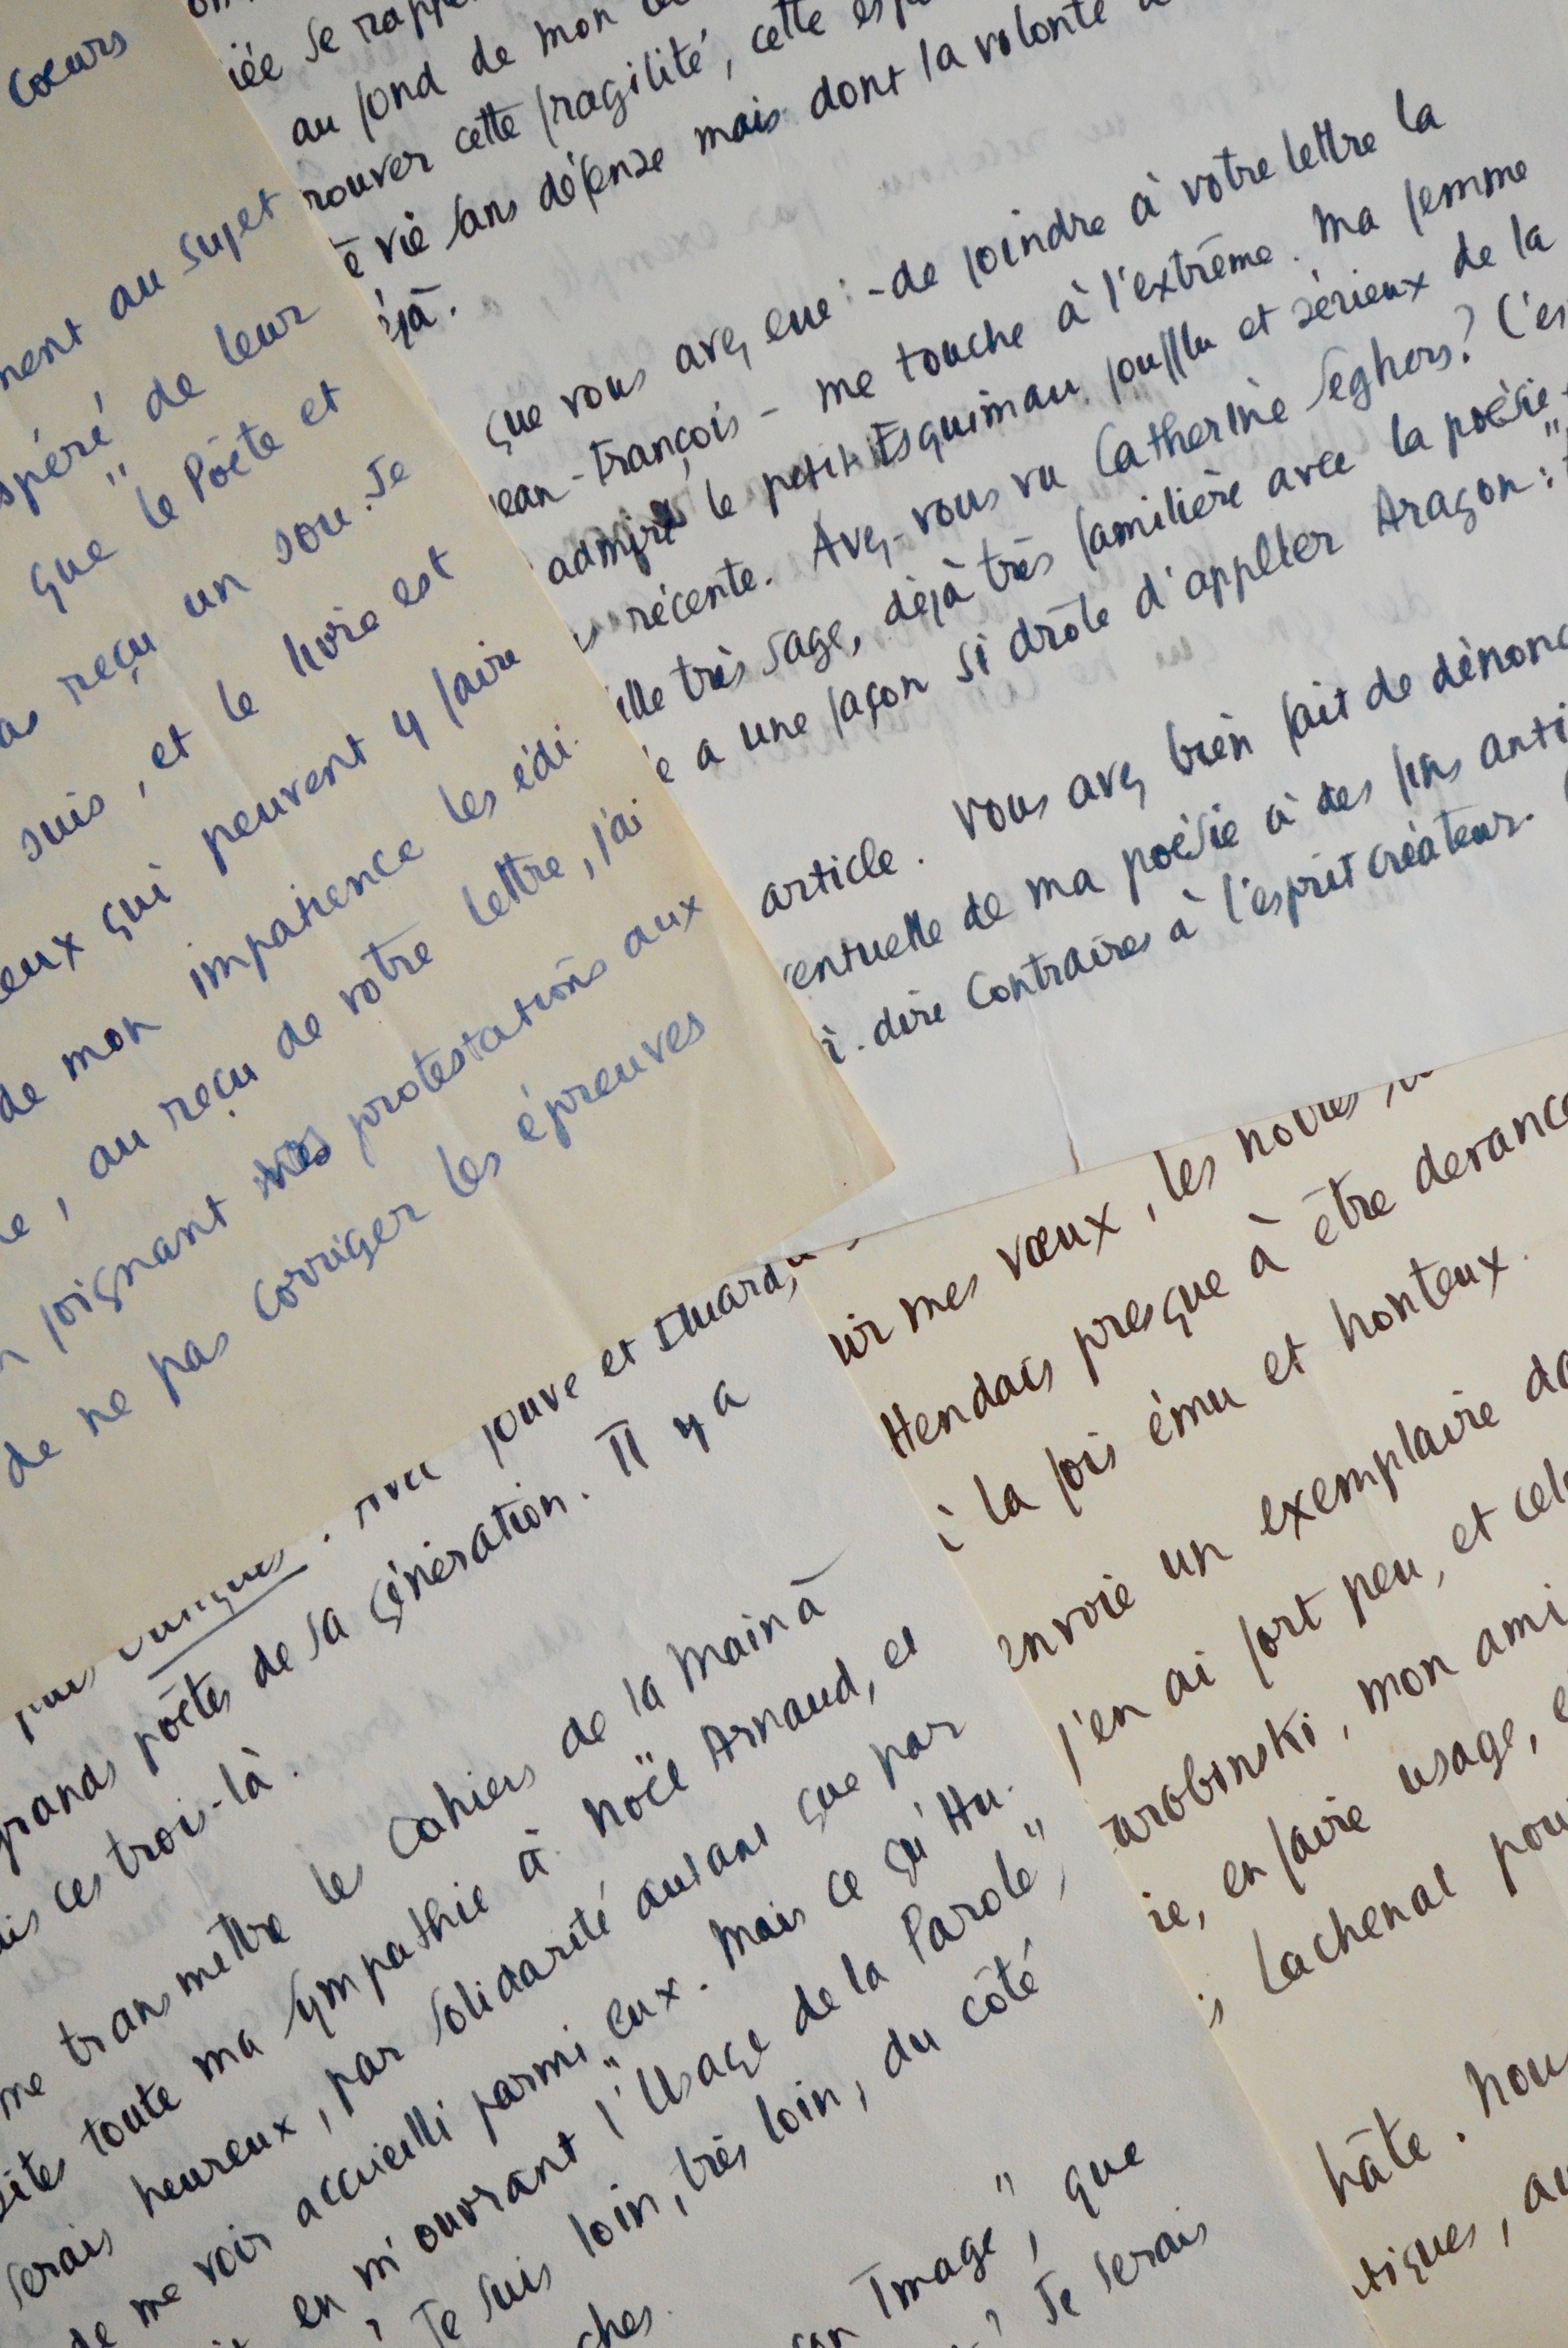 Coeurs
ment au sujet
espéré de leur
que "le Poète et
as reçu un sou. Je
suis, et le livre est
eux qui peuvent y faire
de mon impatience les édi-
e, au reçu de votre lettre, j'ai
joignant mes protestations aux
de ne pas corriger les épreuves
iée se rappe
au fond de mon
rouver cette fragilité, cette esp
e vie sans défense mais dont la volonté
éjà.
que vous avez eue - de joindre à votre lettre la
Jean-François - me touche à l'extrême. Ma femme
admiré le petit Esquimau joufflu et sérieux de la
récente. Avez-vous vu Catherine Seghers? C'es
ille très sage, déjà très familière avec la poésie
e a une façon si drôle d'appeler Aragon: "
article. Vous avez bien fait de dénonc
entuelle de ma poésie à des fins anti
à-dire contraires à l'esprit créateur.
ir mes voeux, les nôtres
ttendais presque à être
à la fois ému et honteux.
envoie un exemplaire
j'en ai fort peu, et cel
tarobinski, mon ami
ie, en faire usage, e
Lachenal pou
hâte. Nou
tiques, au
. Avec Jouve et Eluard,
grands poètes de sa génération. Il y a
is ces trois-là.
me transmettre les Cahiers de la Main à
ites toute ma sympathie à Noël Arnaud, et
serais heureux, par solidarité autant que par
de me voir accueilli parmi eux. Mais ce qu'Hu-
en m'ouvrant "l'Usage de la Parole",
Je suis loin, très loin, du côté
ches.
Image", que
Je serais